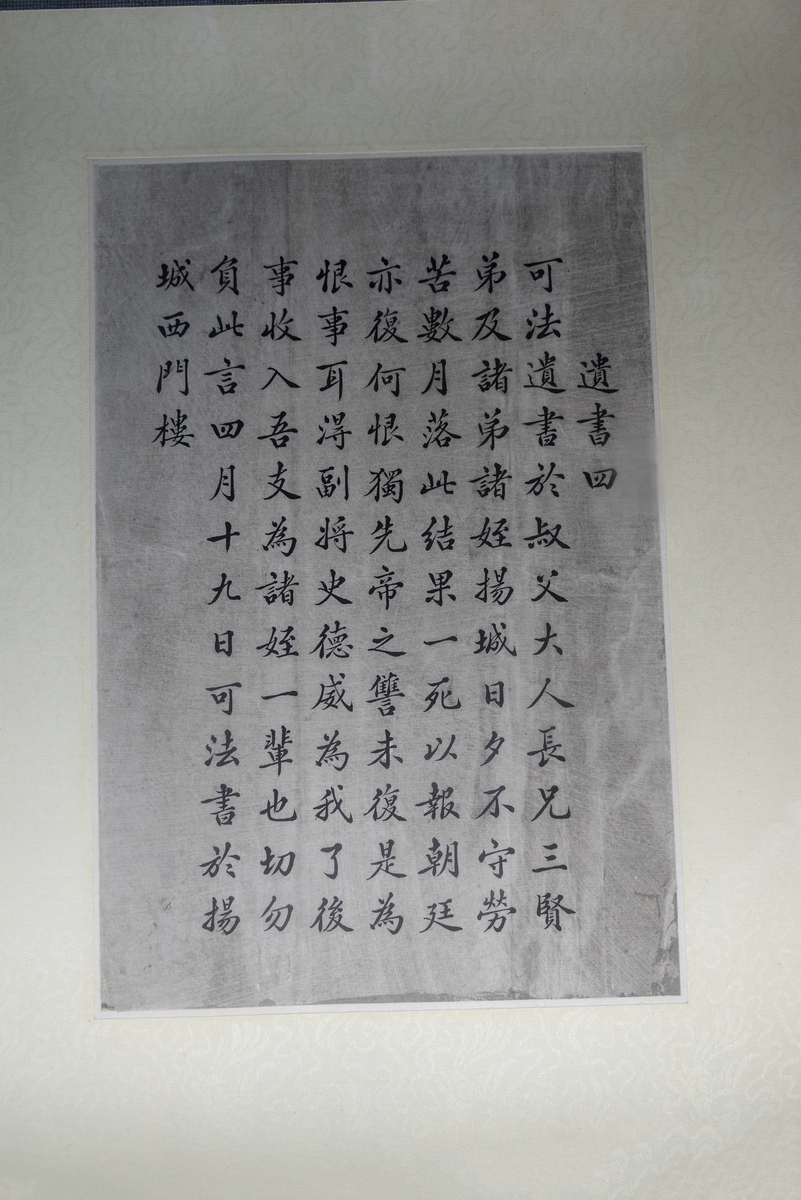 遺書四
可法遺書於叔父大人長兄三賢
弟及諸弟諸姪揚城日夕不守勞
苦數月落此結果一死以報朝廷
亦復何恨獨先帝之讐未復是為
恨事耳得副將史德威為我了後
事收入吾支為諸姪一輩也切勿
負此言四月十九日可法書於揚
城西門樓